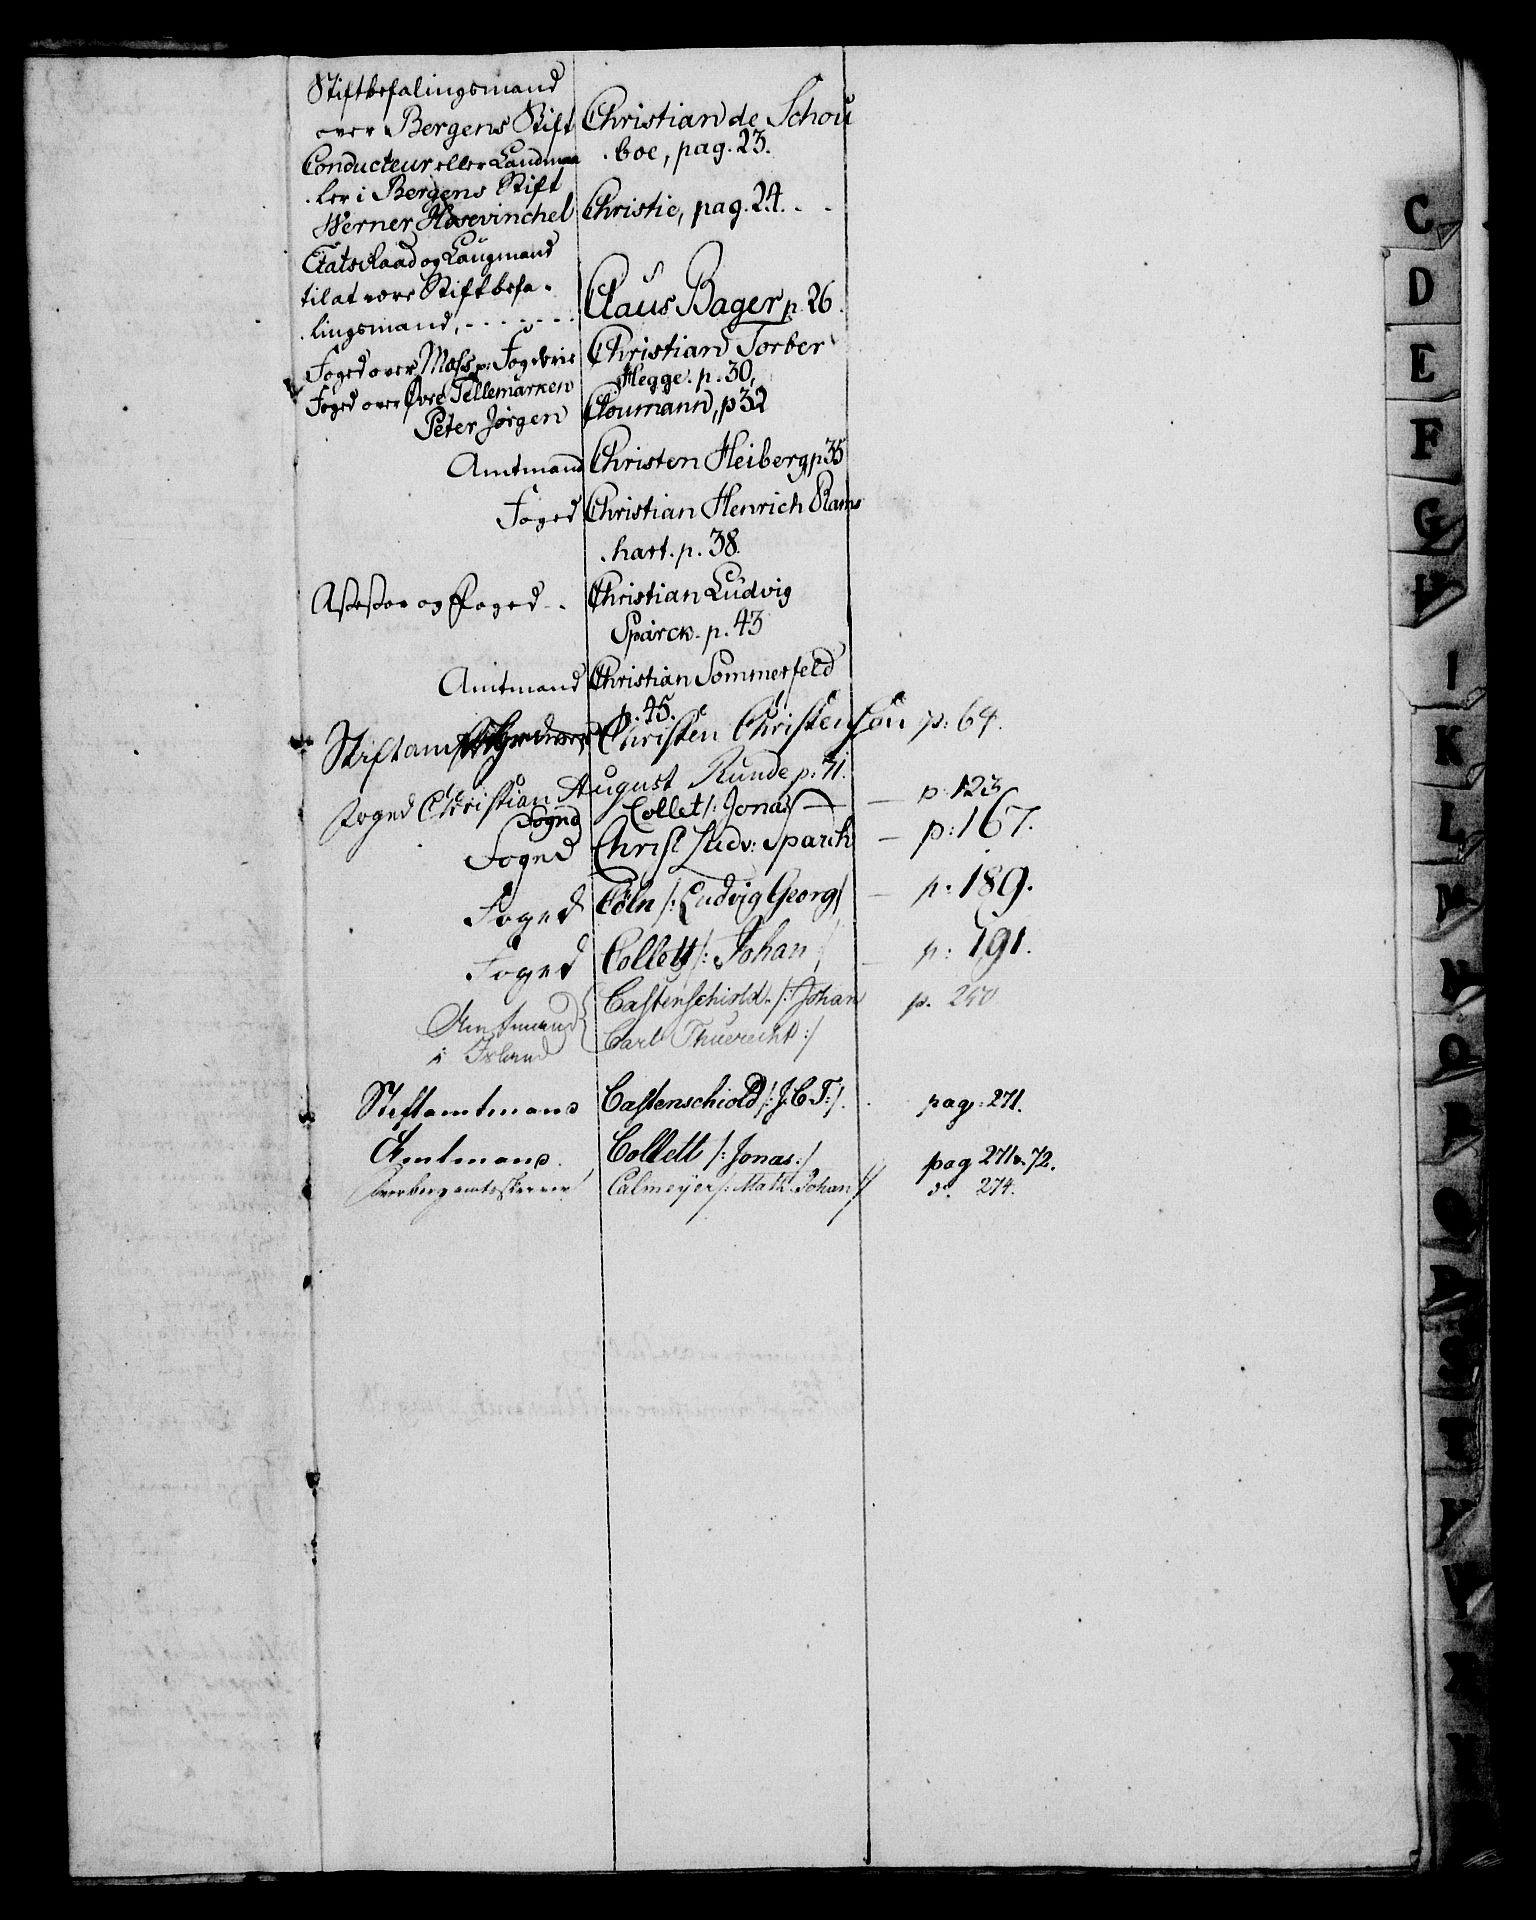 Stiftbefalingsmand
over Bergens Stift Christian de Schou
boe, pag. 23.
Conducteur eller Landmaa
ler i Bergens Stift
Werner Hosevinchel Christie, pag. 24.
EtatsRaad og Laugmand
til at være Stiftbefa-
lingsmand, Claus Bager p. 26.
Foged over Moss Fogderie Christian Torber
Hegge. p. 30,
Foged over Øvre Tellemarken
Peter Jørgen Cloumann, p 32
Amtmand Christen Heiberg p 35
Foged Christian Henrich Rams
hart. p. 38.
Assessor og Foged Christian Ludvig
Sparck. p. 43
Amtmand Christian Sommerfeld
p. 45.
Stiftamt Christen Christensøn p: 64.
Foged Christian August Runde p: 71.
Foged Collet /: Jonas p. 123
Foged Christ Ludv: Sparck p: 167.
Foged Cöln /: Ludvig Georg / p. 189.
Foged Collett /: Johan / p: 191.
Amtmand
i Island
Castenschiold /: Johan p. 240
Carl Thuerecht :/
Stiftamtmand Castenschiold /: J. C. T: /. pag: 271.
Amtmand. Collett /: Jonas: / pag 271 & 72.
Calmeyer /: Math. Johan :/ d°. 274.
C
D
E
F
G
H
I
K
L
M
N
O
P
Q
R
S
T